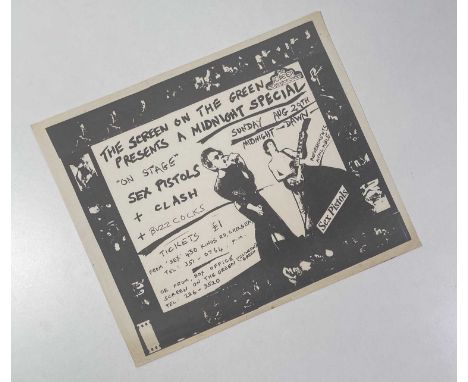 THE SCREEN ON THE GREEN
PRESENTS A MIDNIGHT SPECIAL
SUNDAY AUG 29TH
MIDNIGHT—DAWN
"ON STAGE"
SEX PISTOLS
+ CLASH
+ BUZZCOCKS
TICKETS £1
FROM 'SEX' 430 KINGS RD, CHELSEA
TEL: 351-0764
OR FROM, BOX OFFICE
SCREEN ON THE GREEN
TEL: 226-3520
Sex Pistols